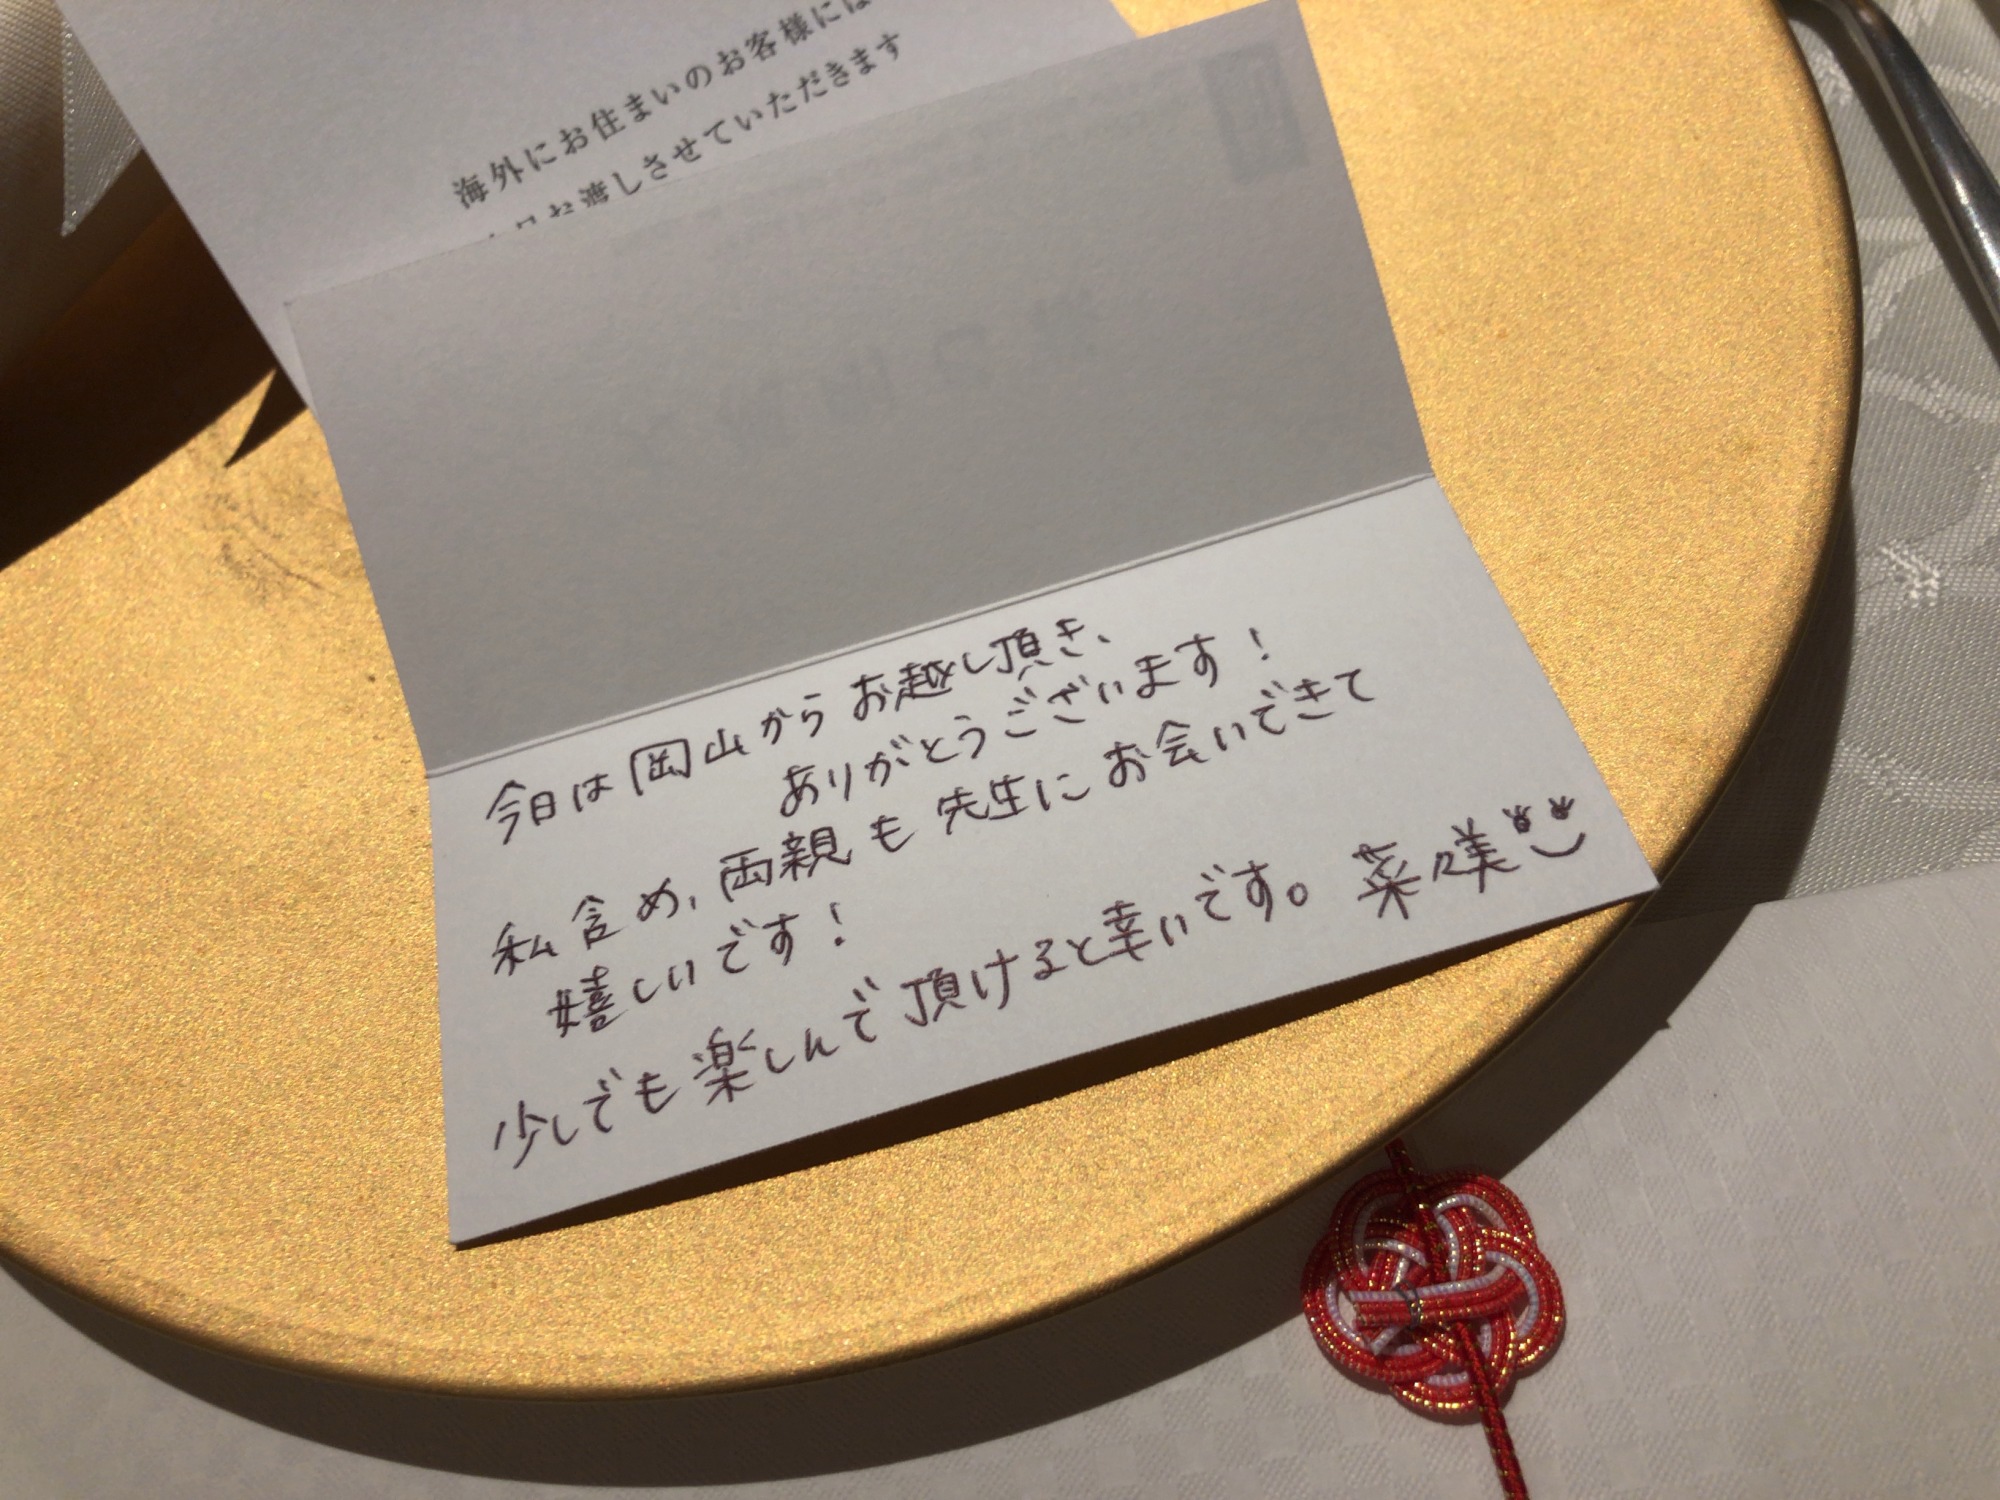 海外にお住まいのお客様には
お渡しさせていただきます
今日は岡山からお越し頂き、
ありがとうございます！
私含め、両親も先生にお会いできて
嬉しいです！
少しでも楽しんで頂けると幸いです。菜々美